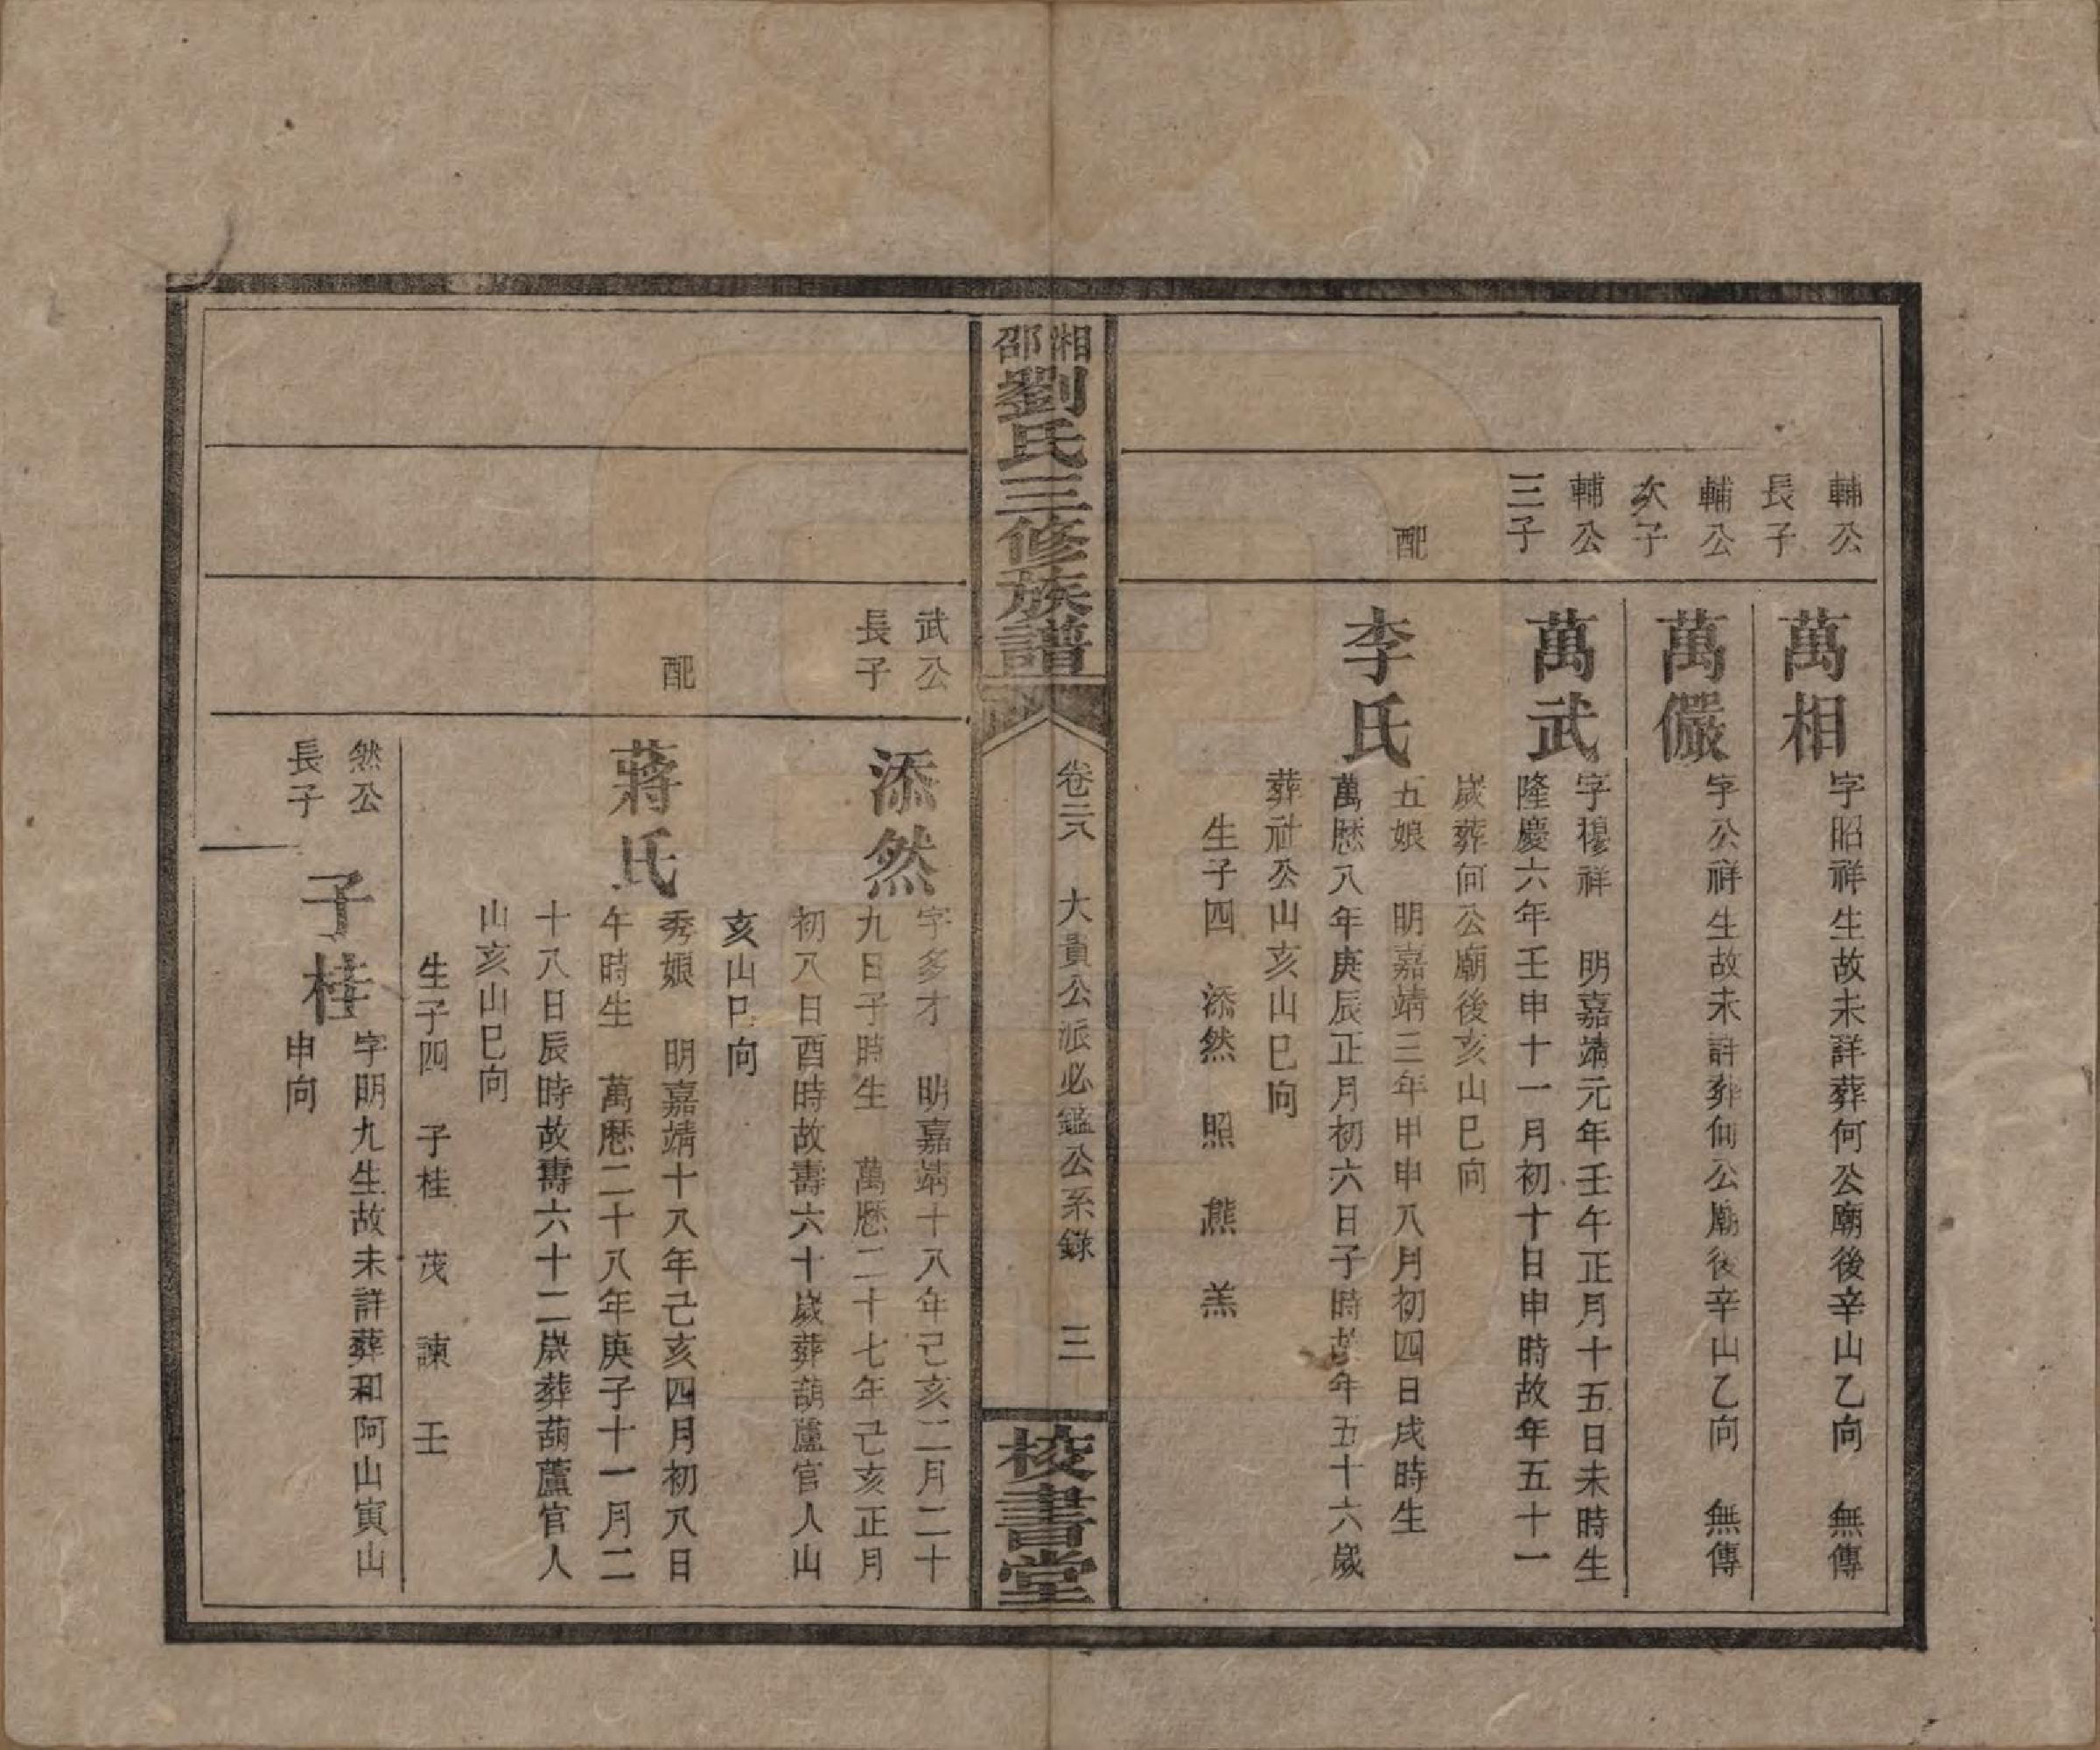 輔公
長子
萬相
字昭祥生故未詳葬何公廟後辛山乙向　無傳
輔公
次子
萬儼
字公祥生故未詳葬何公廟後辛山乙向　無傳
輔公
三子
萬武
字穆祥　明嘉靖元年壬午正月十五日未時生
隆慶六年壬申十一月初十日申時故年五十一
歲葬何公廟後亥山巳向
配
李氏
五娘　明嘉靖三年甲申八月初四日戌時生
萬歷八年庚辰正月初六日子時故年五十六歲
葬社公山亥山巳向
生子四　添然　照　燕　羔
湘邵劉氏三修族譜
卷二八　大貴公派必鑑公系錄　三
校書堂
武公
長子
添然
字多才　明嘉靖十八年己亥二月二十
九日子時生　萬歷二十七年己亥正月
初八日酉時故壽六十歲葬葫蘆官人山
亥山巳向
配
蔣氏
秀娘　明嘉靖十八年己亥四月初八日
午時生　萬歷二十八年庚子十一月二
十八日辰時故壽六十二歲葬葫蘆官人
山亥山巳向
生子四　子桂　茂　諫　壬
然公
長子
子桂
字明九生故未詳葬和阿山寅山
申向